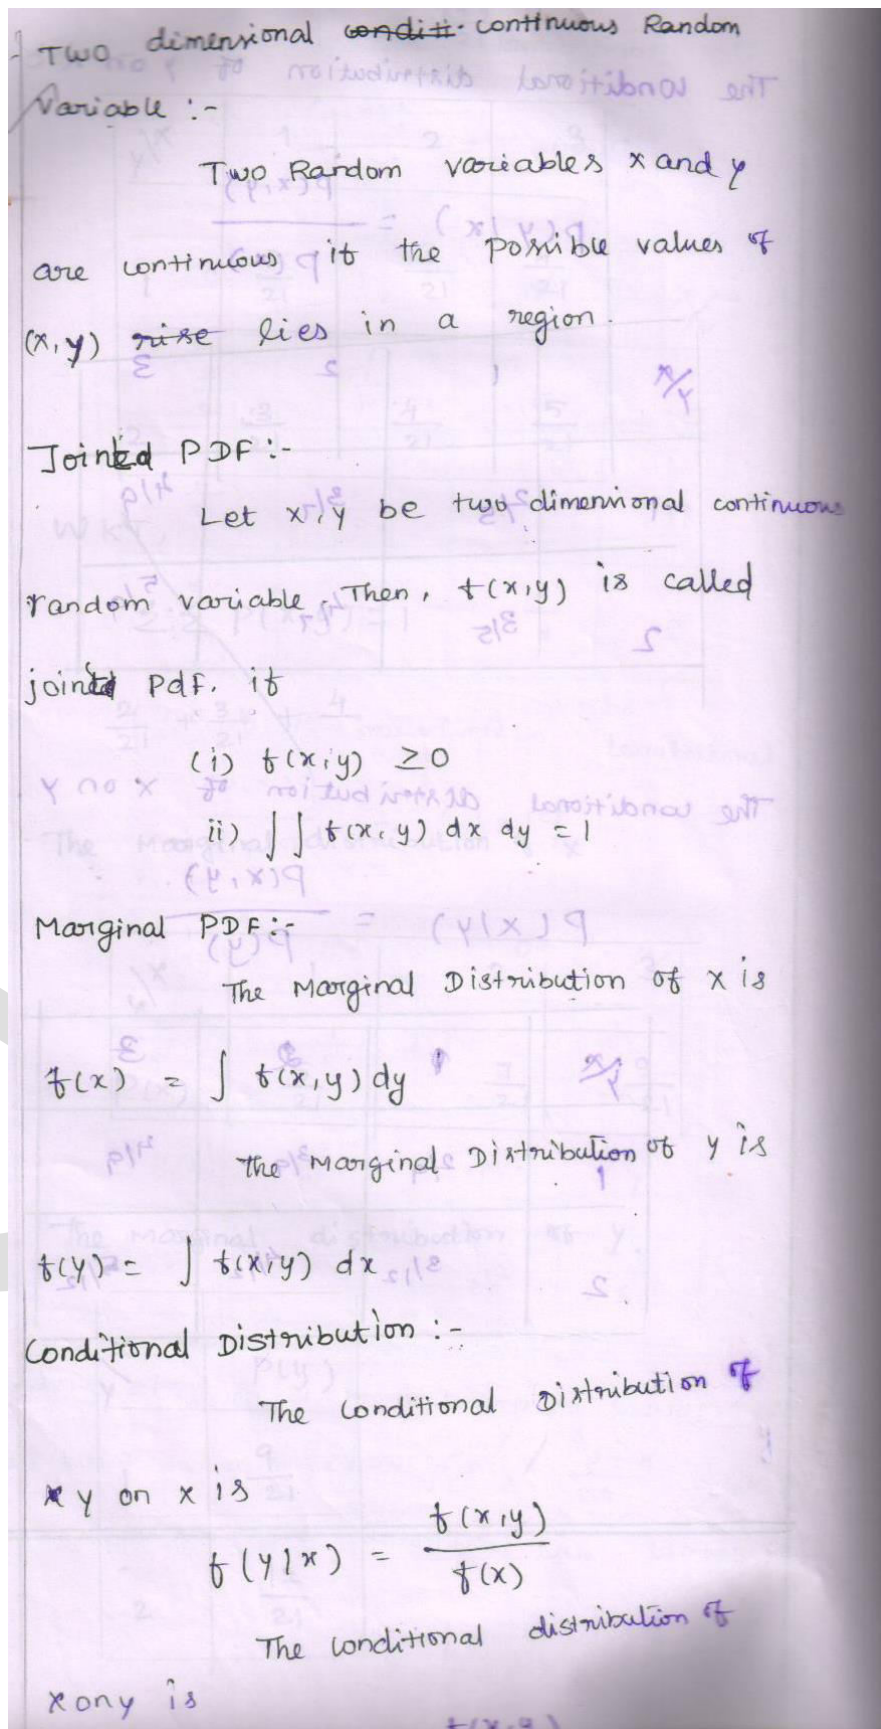 Two dimensional conditi. continuous Random
Variable :-
Two Random variables x and y
are continuous if the possible values of
(x, y) rise lies in a region.
Joint PDF :-
Let x, y be two dimensional continuous
random variable. Then, f(x,y) is called
joint pdf. if
(i) f(x,y) ≥0
ii) ∫ ∫ f(x, y) dx dy = 1
Marginal PDF :-
The Marginal Distribution of x is
f(x) = ∫ f(x,y) dy
The Marginal Distribution of y is
f(y) = ∫ f(x,y) dx
Conditional Distribution :-
The Conditional Distribution of
y on x is
f(y/x) = f(x,y) / f(x)
The Conditional distribution of
x on y is